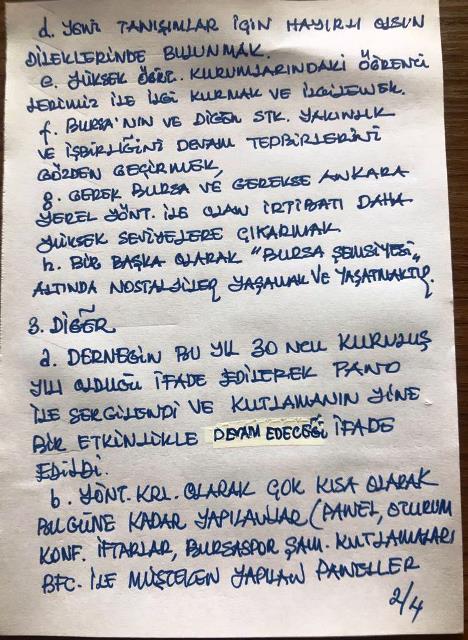 d. YENİ TANIŞIMLAR İÇİN HAYIRLI OLSUN
DİLEKLERİNDE BULUNMAK.
e. YÜKSEK ÖĞRT. KURUMLARINDAKİ ÖĞRENCİ
LERİMİZ İLE İLGİ KURMAK VE İLGİLENEK.
f. BURSA'NIN VE DİĞER STK. YAKINLIK
VE İŞBİRLİĞİNİ DEVAM TEDBİRLERİNİ
GÖZDEN GEÇİRMEK,
g. GEREK BURSA VE GEREKSE ANKARA
YEREL YÖNT. İLE OLAN İRTİBATI DAHA
YÜKSEK SEVİYELERE ÇIKARMAK
h. BİR BAŞKA OLARAK "BURSA ŞEMSİYESİ"
ALTINDA NOSTALJİLER YAŞAMAK VE YAŞATMAKTIR.
3. DİĞER
a. DERNEĞİN BU YIL 30 NCU KURULUŞ
YILI OLDUĞU İFADE EDİLEREK PANO
İLE SERGİLENDİ VE KUTLAMANIN YİNE
BİR ETKİNLİKLE DEVAM EDECEĞİ İFADE
EDİLDİ.
b. YÖNT. KRL. OLARAK ÇOK KISA OLARAK
BU GÜNE KADAR YAPILANLAR (PANEL, OTURUM
KONF. İFTARLAR, BURSASPOR ŞAM. KUTLAMALARI
BFC. İLE MÜŞTEKEN YAPILAN PANELLER
2/4